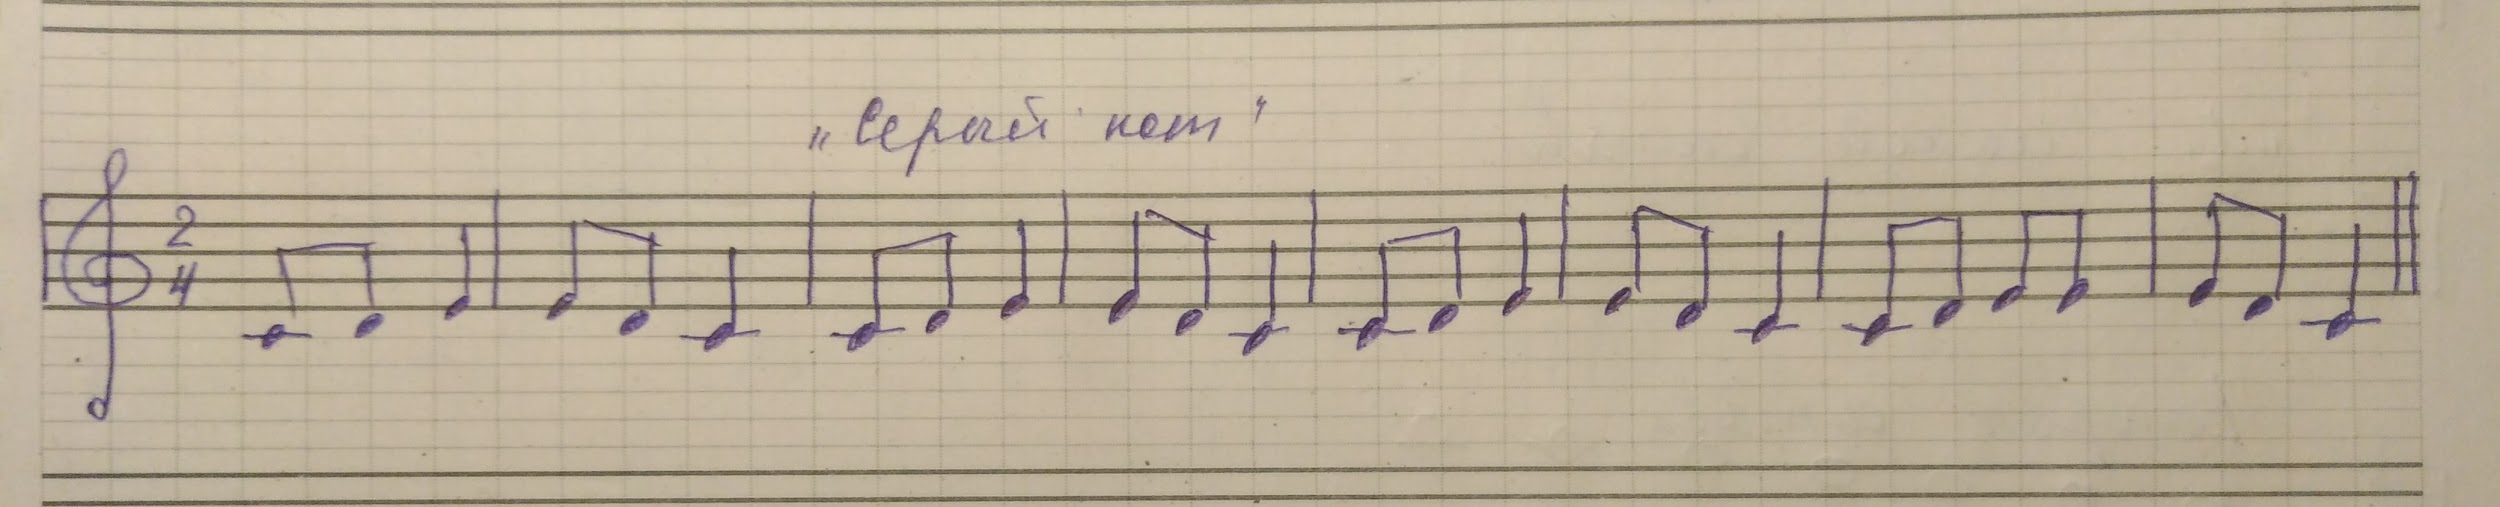 „Серый кот"
2
4